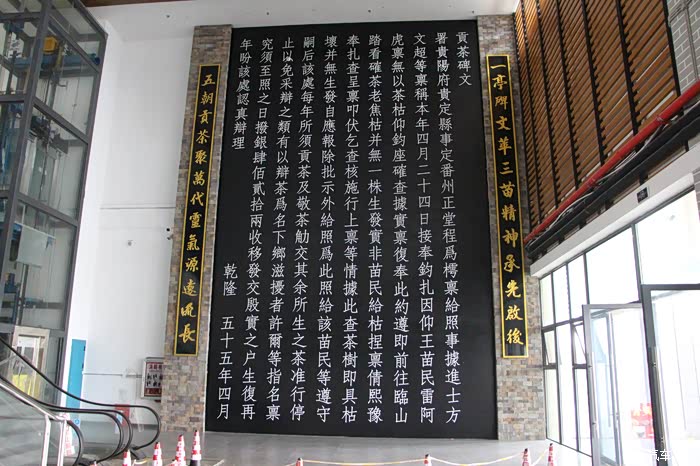 一亭碑文萃三苗精神承先啟後
貢茶碑文
署貴陽府貴定縣事定番州正堂程爲樗稟給照事據進士方
文超等稟稱本年四月二十四日接奉鈞扎因仰王苗民雷阿
虎稟無以茶枯仰鈞座確查據實稟復奉此約遵即前往臨山
踏看確茶老焦枯并無一株生發實非苗民給枯捏稟倩熙豫
奉扎查呈稟叩伏乞查核施行上稟等情據此查茶樹即具枯
壞并無生發自應報除批示外給照爲此照給該苗民等遵守
嗣后該處每年所須貢茶及敬茶觔交其余所生之茶准行停
止以免采辯之類有以辯茶爲名下鄉滋擾者許爾等指名稟
究須至照之日撥銀肆佰貳拾兩收移發交殷實之户生復再
年盼該處認真辯理
乾隆 五十五年四月
五朝貢茶聚萬代靈氣源遠流長